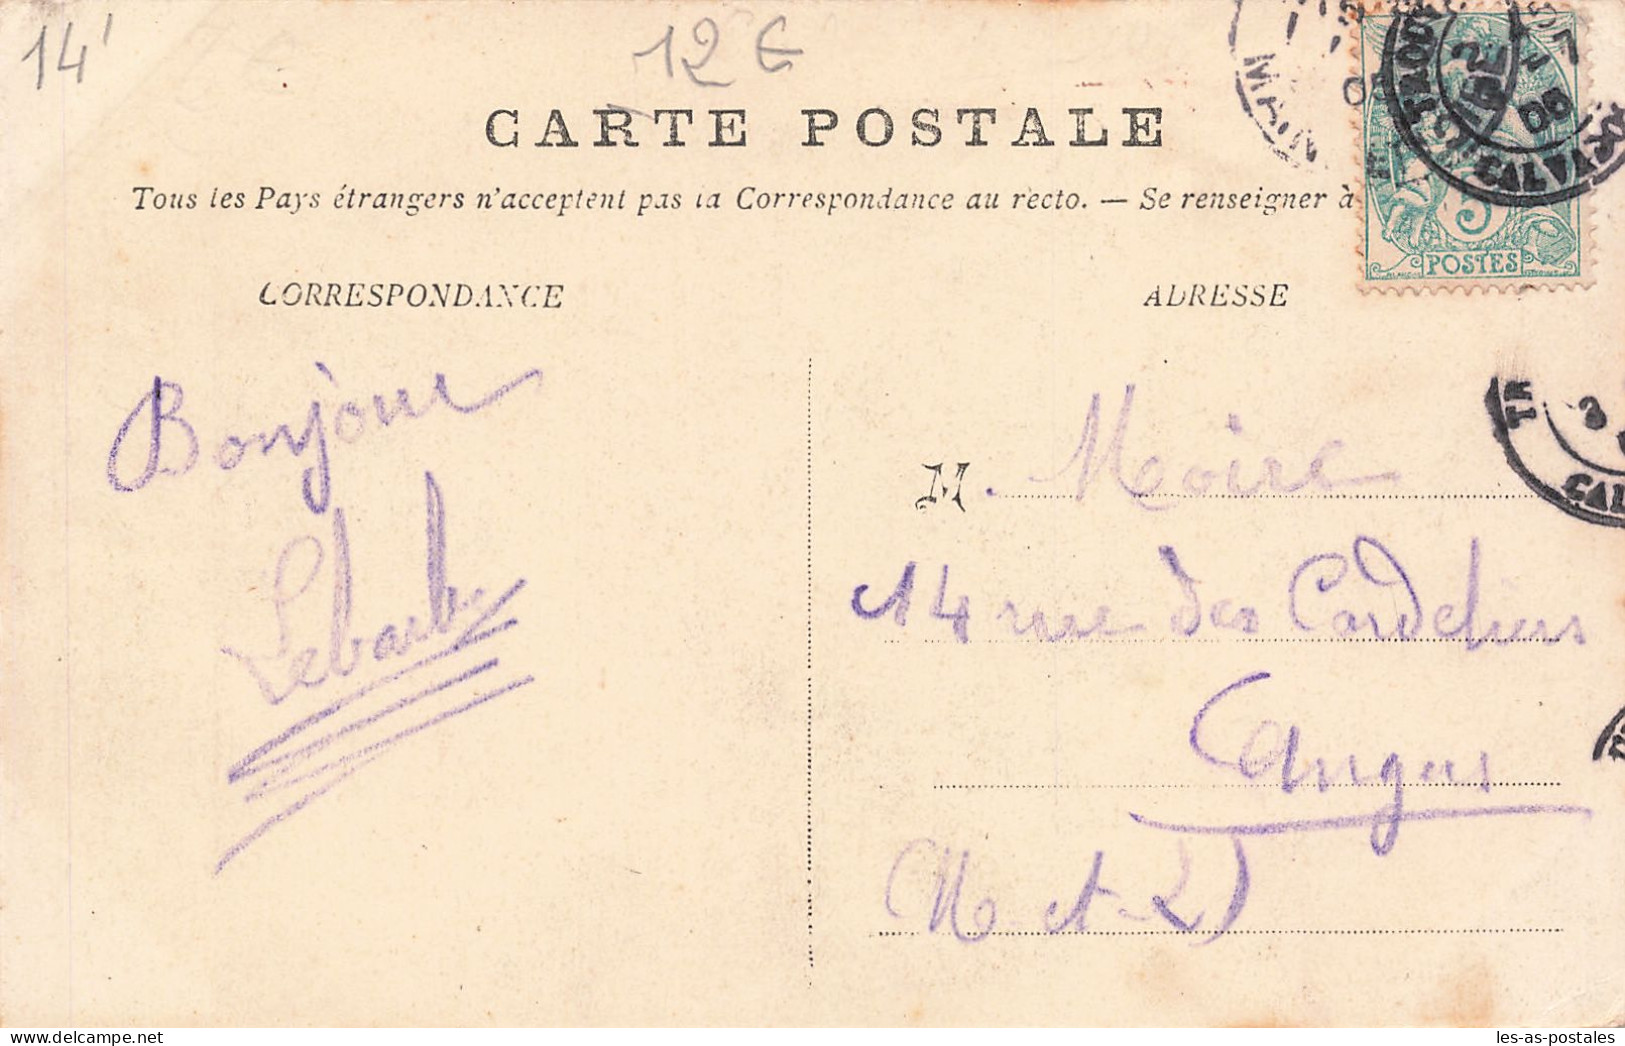 14'
12 €
CARTE POSTALE
Tous les Pays étrangers n'acceptent pas la Correspondance au recto. — Se renseigner à
5
POSTES
CALVADOS
08
CORRESPONDANCE
ADRESSE
Bonjour
M. Moire
14 rue des Cordeliers
Angers
M et L
les-as-postales